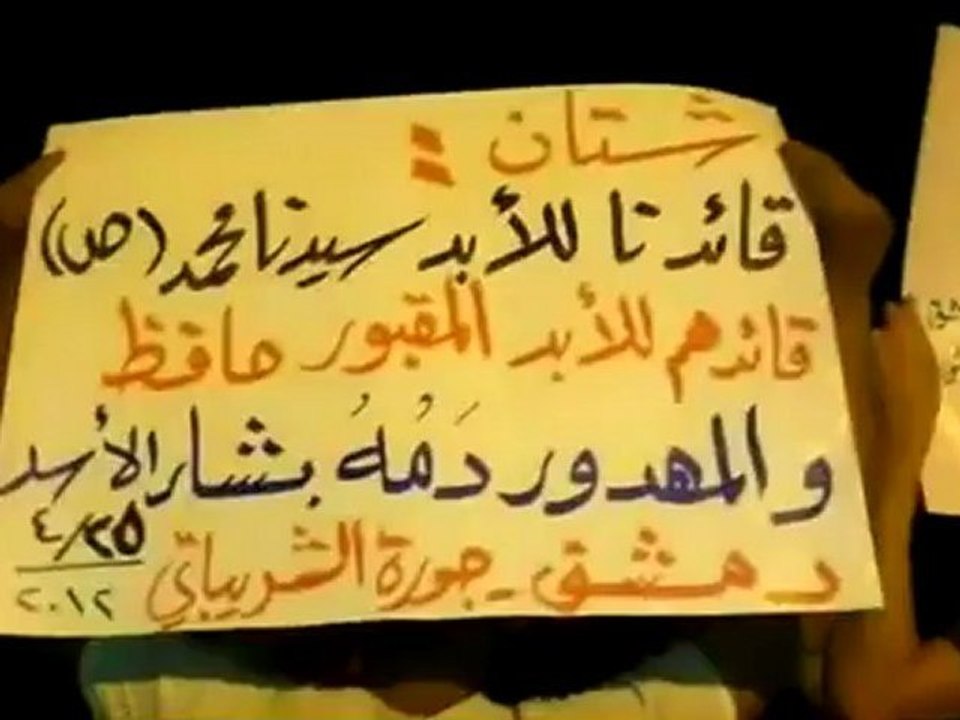 شتان :
قائدنا للأبد سيدنا محمد (ص)
قائدهم للأبد المقبور حافظ
و المهدور دَمُهُ بشار الأسد
دمشق - جورة الشريباتي
٢٥/٤
٢٠١٢